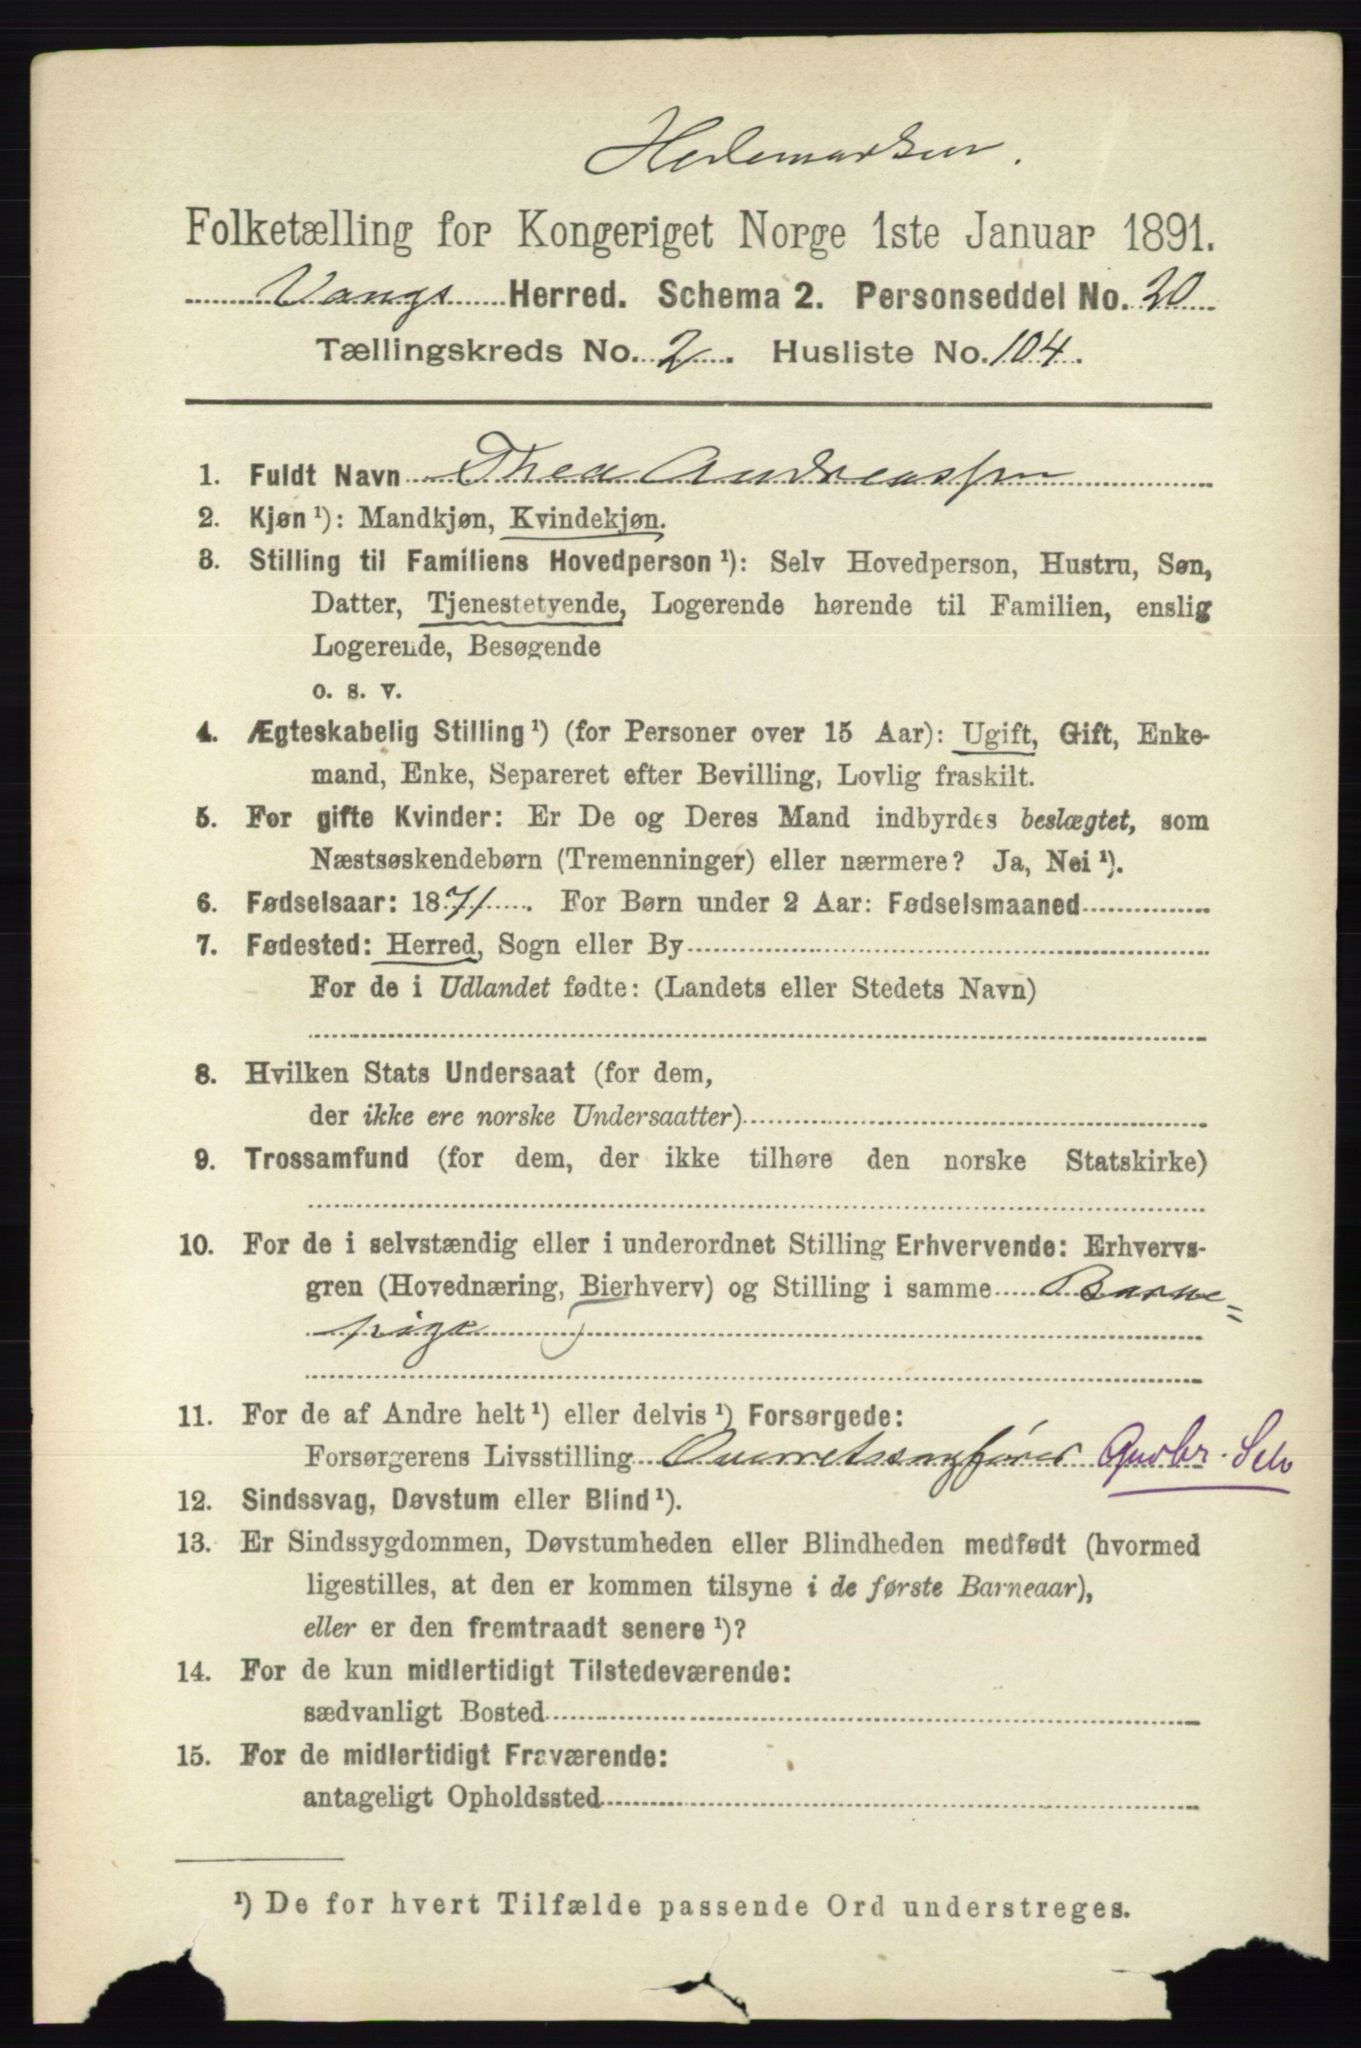 Hedemarken.
Folketælling for Kongeriget Norge 1ste Januar 1891.
Vangs Herred. Schema 2. Personseddel No. 20
Tællingskreds No. 2. Husliste No. 104.
1. Fuldt Navn Thea Andreassen
2. Kjøn ¹): Mandkjøn, Kvindekjøn.
3. Stilling til Familiens Hovedperson ¹): Selv Hovedperson, Hustru, Søn,
Datter, Tjenestetyende, Logerende hørende til Familien, enslig
Logerende, Besøgende
o. s. v.
4. Ægteskabelig Stilling ¹) (for Personer over 15 Aar): Ugift, Gift, Enke-
mand, Enke, Separeret efter Bevilling, Lovlig fraskilt.
5. For gifte Kvinder: Er De og Deres Mand indbyrdes beslægtet, som
Næstsøskendebørn (Tremenninger) eller nærmere? Ja, Nei ¹).
6. Fødselsaar: 1871. For Børn under 2 Aar: Fødselsmaaned
7. Fødested: Herred, Sogn eller By
For de i Udlandet fødte: (Landets eller Stedets Navn)
8. Hvilken Stats Undersaat (for dem,
der ikke ere norske Undersaatter)
9. Trossamfund (for dem, der ikke tilhøre den norske Statskirke)
10. For de i selvstændig eller i underordnet Stilling Erhvervende: Erhvervs-
gren (Hovednæring, Bierhverv) og Stilling i samme Barne=
pige
11. For de af Andre helt ¹) eller delvis ¹) Forsørgede:
Forsørgerens Livsstilling Selv
12. Sindssvag, Døvstum eller Blind ¹).
13. Er Sindssygdommen, Døvstumheden eller Blindheden medfødt (hvormed
ligestilles, at den er kommen tilsyne i de første Barneaar),
eller er den fremtraadt senere ¹)?
14. For de kun midlertidigt Tilstedeværende:
sædvanligt Bosted
15. For de midlertidigt Fraværende:
antageligt Opholdssted
¹) De for hvert Tilfælde passende Ord understreges.